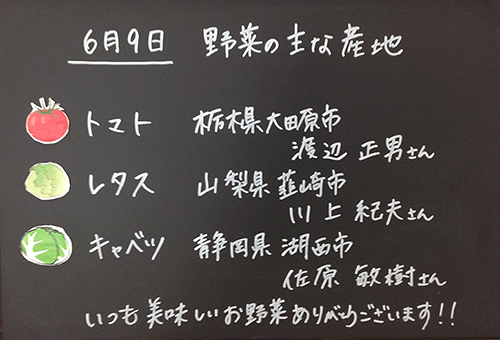 6月9日 野菜の主な産地
トマト 栃木県大田原市
渡辺 正男さん
レタス 山梨県韮崎市
川上 紀夫さん
キャベツ 静岡県湖西市
佐原 敏樹さん
いつも美味しいお野菜ありがとうございます!!